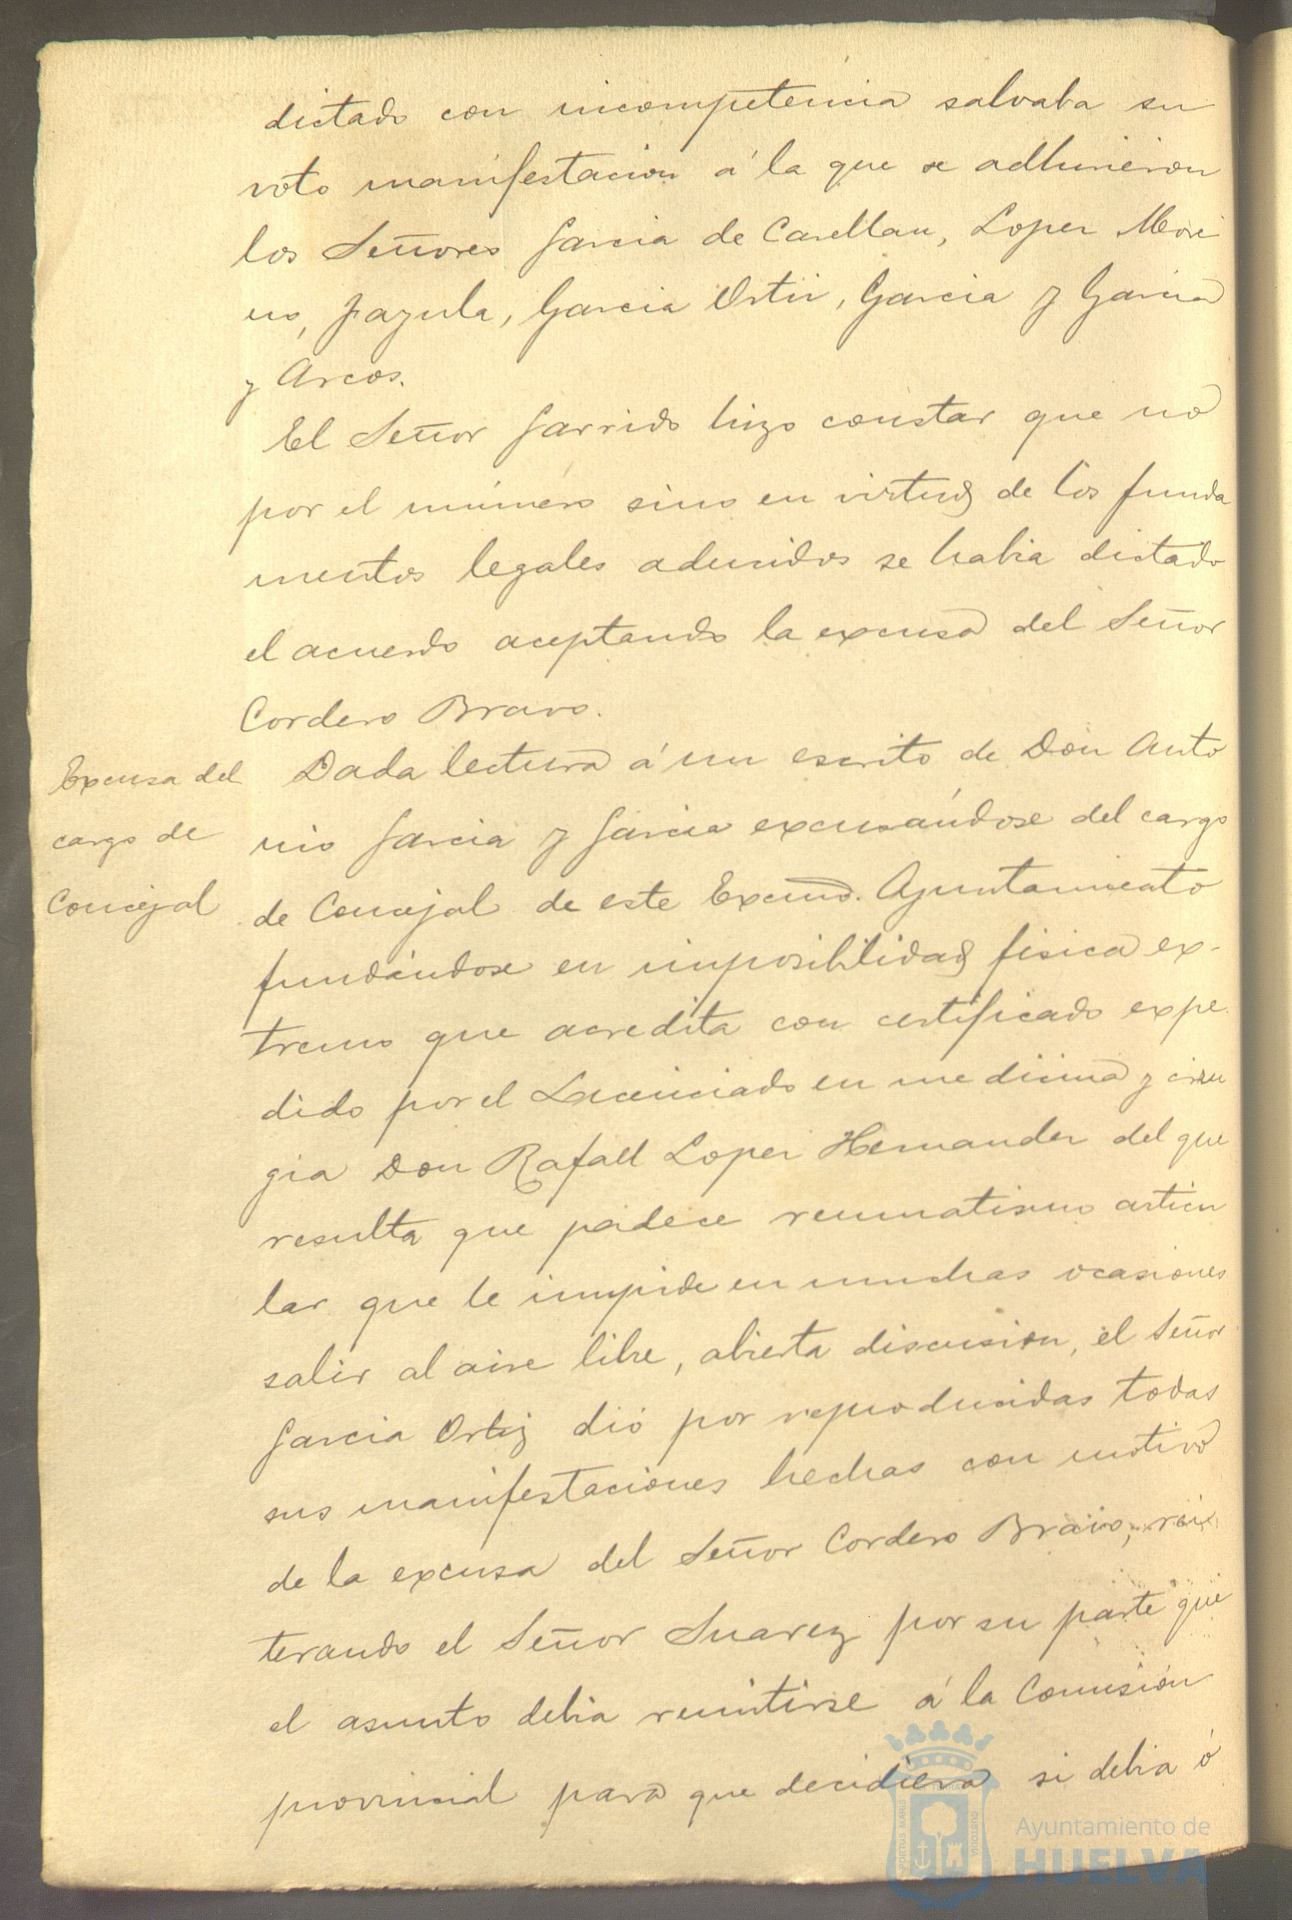 dictado con incompetencia salvaba su
voto manifestacion á la que se adhirieron
los Señores Garcia de Casellan, Lopez More
no, Jazula, Garcia Ortiz, Garcia y Garcia
y Arcos.
El Señor Garrido hizo constar que no
por el número sino en virtud de los funda
mentos legales aducidos se habia dictado
el acuerdo aceptando la excusa del Señor
Cordero Bravo.
Excusa del
cargo de
Concejal
Dada lectura á un escrito de Don Anto
nio Garcia y Garcia excusándose del cargo
de Concejal de este Excmo. Ayuntamiento
fundándose en imposibilidad fisica ex-
tremo que acredita con certificado expe
dido por el Licenciado en medicina y ciru
gia Don Rafael Lopez Hernandez del que
resulta que padece reumatismo articu
lar que le impide en muchas ocasiones
salir al aire libre, abierta discusion, el Señor
Garcia Ortiz dió por reproducidas todas
sus manifestaciones hechas con motivo
de la excusa del Señor Cordero Bravo, rei
terando el Señor Suarez por su parte que
el asunto debia remitirse á la Comision
provincial para que decidiera si debia ó
PORTUS MARIS
CUSTODIA
Ayuntamiento de
HUELVA